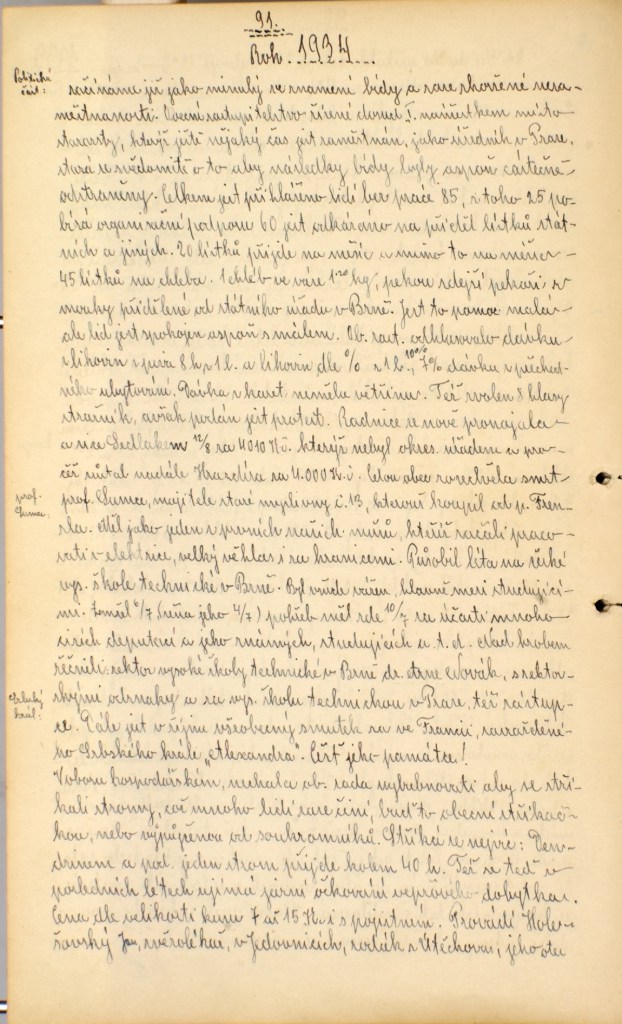 91.
Rok 1934.
Politická
část:
začínáme již jako minulý ve znamení bídy a zase zhoršené neza-
městnanosti. Obecní zastupitelstvo řízené dosud I. náměstkem místo
starosty, který jistě nějaký čas jest zaměstnán, jako úředník v Praze,
stará se svědomitě o to aby následky bídy byly aspoň částečně
odstraněny. Celkem jest přihlášeno lidí bez práce 85, z toho 25 po-
bírá organisační podporu 60 jest odkázáno na příděl lístků stát-
ních a jiných. 20 lístků přijde na měsíc a mimo to na měsíc
45 lístků na chleba. 1 chléb ve váze 1·20 kg, pekou zdejší pekaři z
mouky přidělené od státního úřadu v Brně. Jest to pomoc malá-
ale lid jest spokojen aspoň s málem. Ob. zast. odhlasovalo dávku
z lihovin z piva 8 h z 1 l. a lihovin dle % z 1 l., 10% 7% dávku z přechod-
ného ubytování. Dávka z karet neměla většinu. Též zvolen 8 hlasy
strážník, avšak podán jest protest. Radnice se nově pronajala
a sice Sedlákem 12/8 za 4010 Kč. kterýž nebyl okres. úřadem a pro-
čež zůstal nadále Hrazdíra za 4.000 Kč. Celou obec rozechvěla smrt
prof.
Sumce.
prof. Sumce, majitele staré myslivny č. 13, kterouž koupil od p. Fren-
zla. Měl jako jeden z prvních našich mužů, kteříž začali praco-
vati v elektrice, velký věhlas i za hranicemi. Působil léta na české
vys. škole technické v Brně. Byl všude vážen, hlavně mezi studující-
mi. Zemřel 6/7 (žena jeho 4/7) pohřeb měl zde 10/7 za účasti mnoho
cizích deputací a jeho známých, studujících a. t. d. Nad hrobem
řečnili: rektor vysoké školy technické v Brně dr. Arne Novák, s rektor-
Srbský
král:
skými odznaky a za vys. školu technickou v Praze, též zástup-
ce. Dále jest v říjnu všeobecný smutek za ve Francii, zavražděné-
ho Srbského krále „Alexandra“. Čest jeho památce!
V oboru hospodářském, nechala ob. rada vybubnovati aby se stří-
kali stromy, což mnoho lidí zase činí, buď to obecní stříkač-
kou, nebo výpůjčenou od soukromníků. Stříká se nejvíc: Den-
drinem a pod. jeden strom přijde kolem 40 h. Též se teď v
posledních létech ujímá jarní očkování vepřového dobytka.
Cena dle velikosti kusu 7 až 15 Kč i s pojistném. Provádí Hole-
šovský Jan, zvěrolékař, v Jedovnicích, rodák z Útěchova, jeho otec